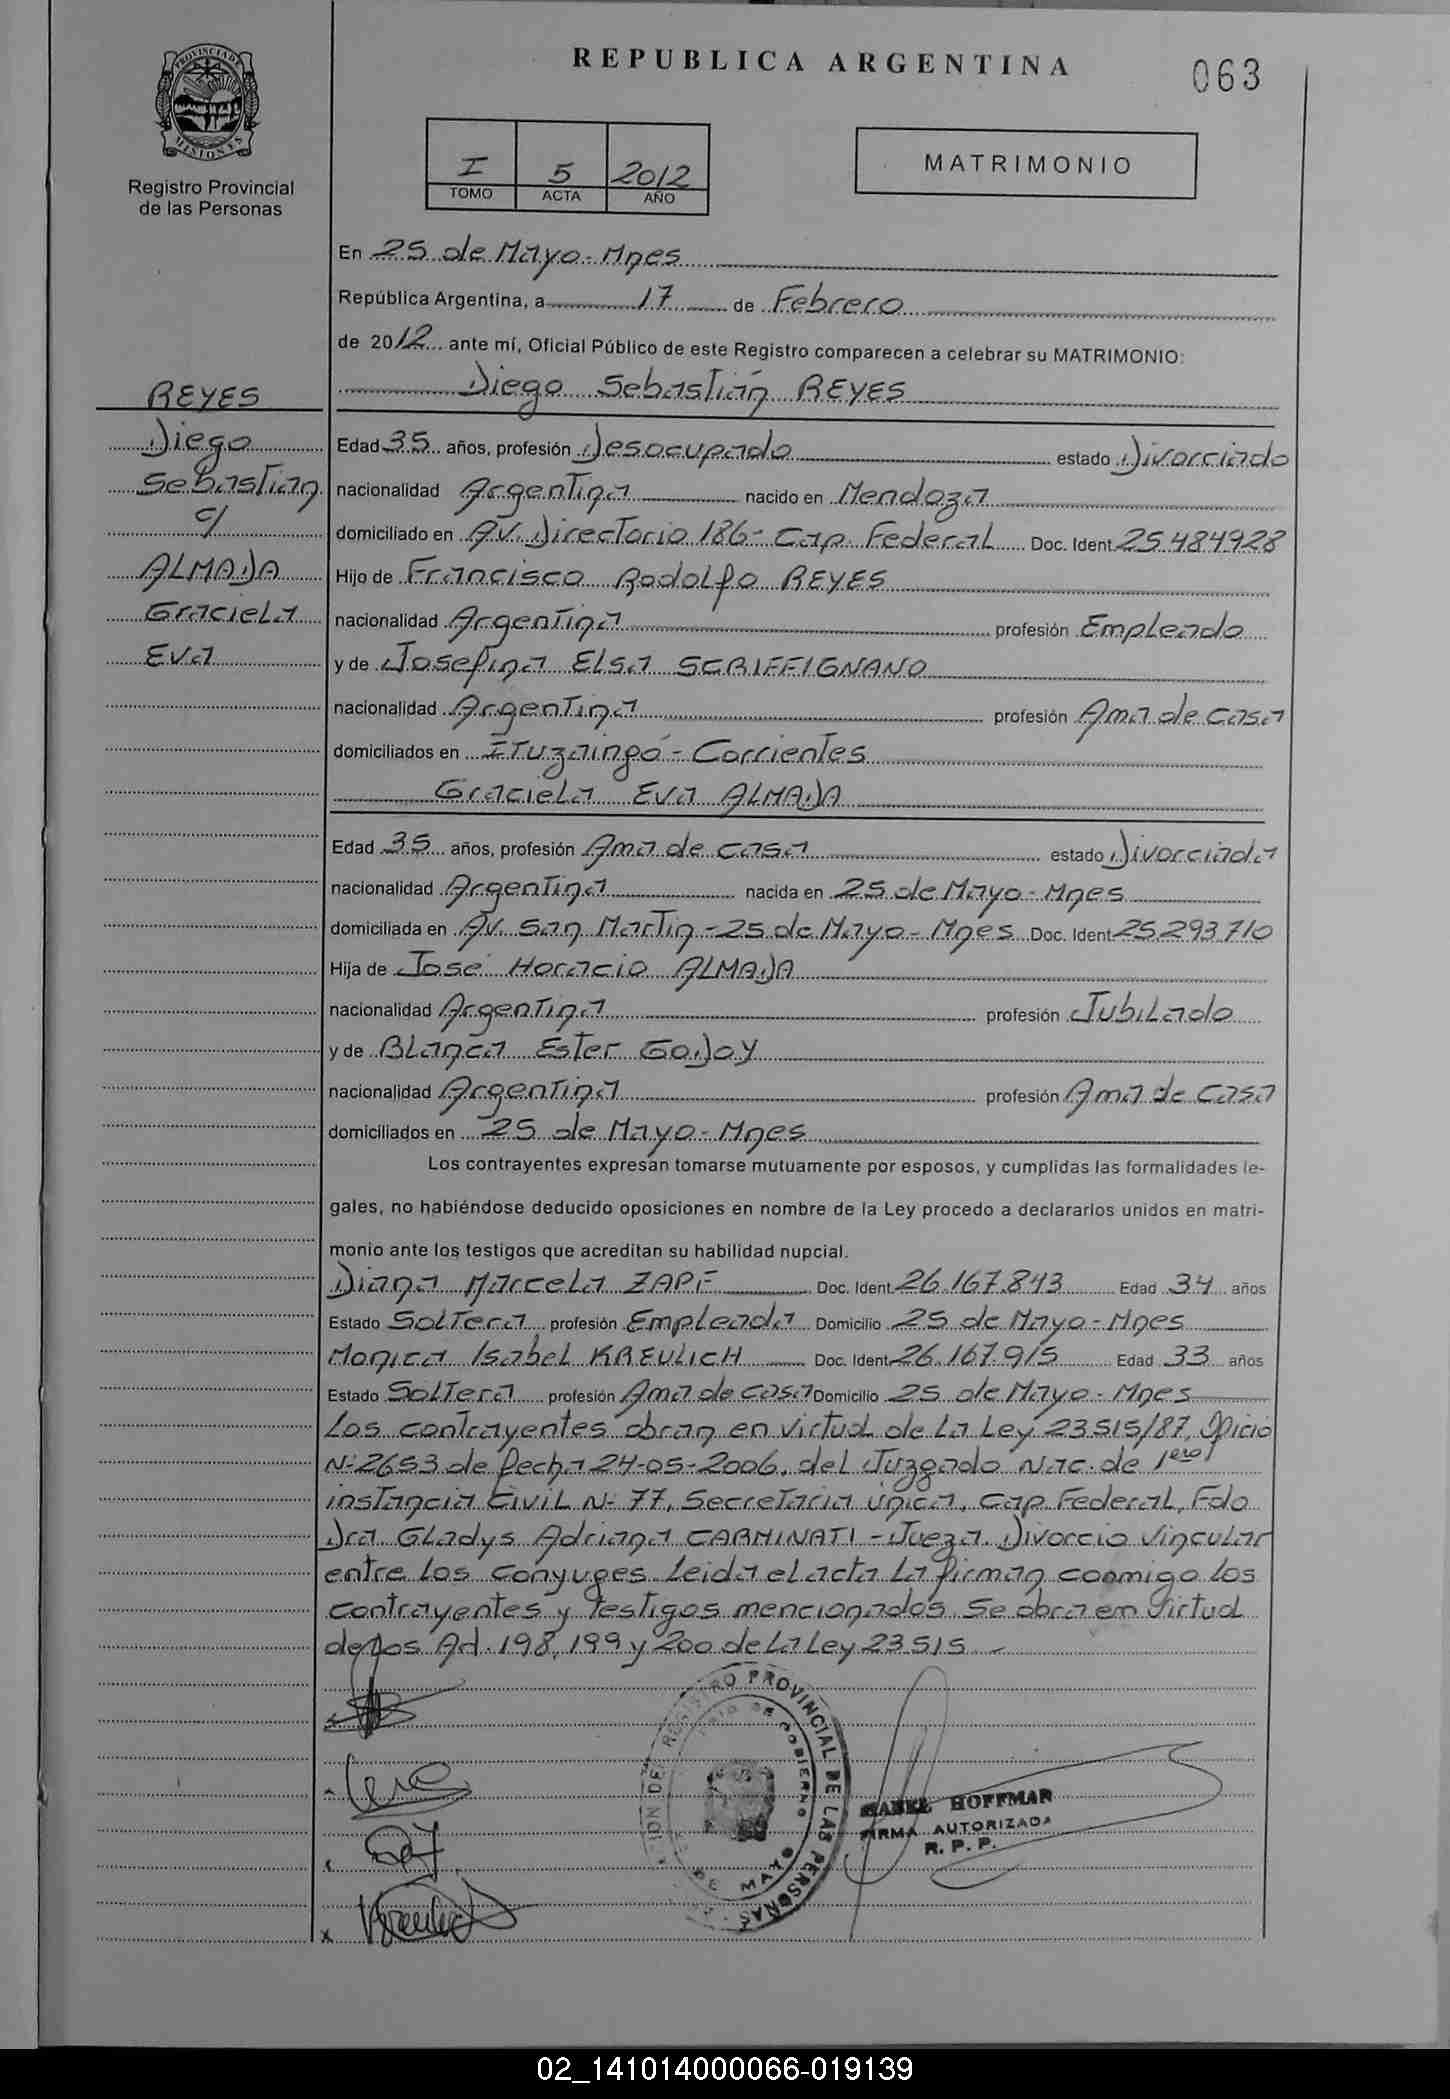 REPUBLICA ARGENTINA
063
PROVINCIA DE
MISIONES
Registro Provincial
de las Personas
I 5 2012
TOMO ACTA AÑO
MATRIMONIO
En 25 de Mayo - Mnes
República Argentina, a 17 de Febrero
de 2012 ante mí, Oficial Público de este Registro comparecen a celebrar su MATRIMONIO:
Diego Sebastián REYES
REYES
Diego
Sebastian
c/
ALMADA
Graciela
Eva
Edad 35 años, profesión Desocupado estado Divorciado
nacionalidad Argentina nacido en Mendoza
domiciliado en Av. Directorio 186 - Cap. Federal Doc. Ident. 25.484928
Hijo de Francisco Rodolfo REYES
nacionalidad Argentina profesión Empleado
y de Josefina Elsa SCRIFFIGNANO
nacionalidad Argentina profesión Ama de casa
domiciliados en Ituzaingó - Corrientes
Graciela Eva ALMADA
Edad 35 años, profesión Ama de casa estado Divorciada
nacionalidad Argentina nacida en 25 de Mayo - Mnes
domiciliada en Av. San Martin - 25 de Mayo - Mnes Doc. Ident. 25.293.710
Hija de José Horacio ALMADA
nacionalidad Argentina profesión Jubilado
y de Blanca Ester GODOY
nacionalidad Argentina profesión Ama de casa
domiciliados en 25 de Mayo - Mnes
Los contrayentes expresan tomarse mutuamente por esposos, y cumplidas las formalidades le-
gales, no habiéndose deducido oposiciones en nombre de la Ley procedo a declararlos unidos en matri-
monio ante los testigos que acreditan su habilidad nupcial.
Diana Marcela ZAPF Doc. Ident. 26.167.843 Edad 34 años
Estado Soltera profesión Empleada Domicilio 25 de Mayo - Mnes
Monica Isabel KREULICH Doc. Ident. 26.167.915 Edad 33 años
Estado Soltera profesión Ama de casa Domicilio 25 de Mayo - Mnes
Los contrayentes obran en virtud de la Ley 23.515/87, Oficio
N: 2653 de fecha 24-05-2006, del Juzgado Nac. de 1era
instancia Civil N: 77, Secretaria única, Cap. Federal, Fdo
Dra Gladys Adriana CARMINATI - Jueza. Divorcio Vincular
entre los conyuges. Leida el acta la firman conmigo los
contrayentes y testigos mencionados. Se obra em virtud
de los Ad. 198, 199 y 200 de la Ley 23.515 -
REGISTRO PROVINCIAL DE LAS PERSONAS
DE GOBIERNO
DE MAYO
ISABEL HOFFMAN
FIRMA AUTORIZADA
R. P. P.
02_141014000066-019139